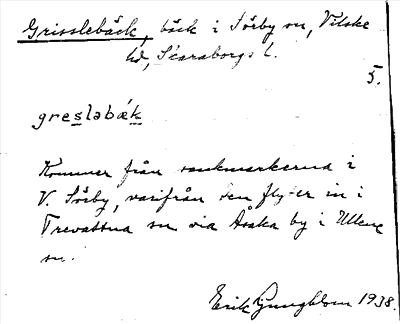 Grisslebäck, bäck i Sörby sn, Vilske
hd, Skaraborgs l.
5.
gresləbæk
Kommer från sankmarkerna i
V. Sörby, varifrån den flyter in i
Trevattna sn via Åsaka by i Ullene
sn.
Erik Ljungblom 1938.